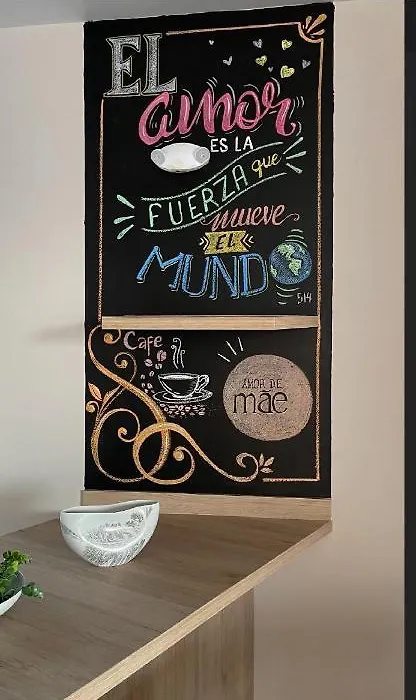 EL
amor
ES LA
FUERZA que
mueve
EL
MUNDO
514
Cafe
AMOR DE
mae